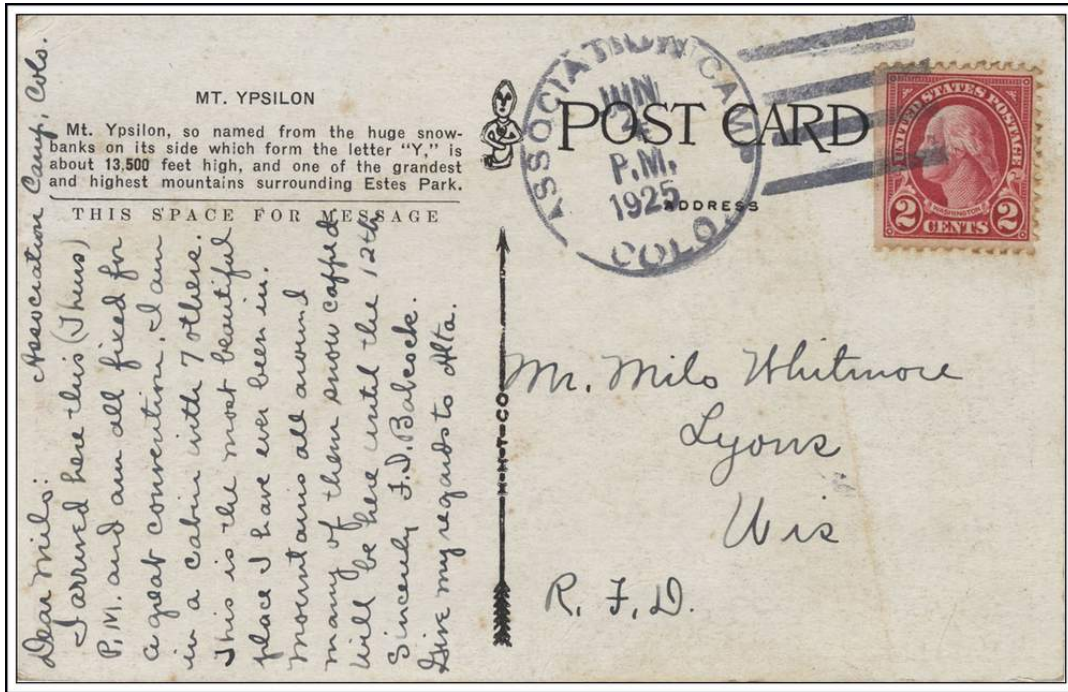 MT. YPSILON
Mt. Ypsilon, so named from the huge snow-
banks on its side which form the letter "Y," is
about 13,500 feet high, and one of the grandest
and highest mountains surrounding Estes Park.
THIS SPACE FOR MESSAGE
Association Camp, Colo.
Dear Milo:
I arrived here this (Thurs)
P.M. and am all fixed for
a great convention. I am
in a cabin with 7 others.
This is the most beautiful
place I have ever been in.
Mountains all around
many of them snow capped
Will be here until the 12th
Sincerely F.D. Babcock.
Give my regards to Alta.
POST CARD
ADDRESS
ASSOCIATION CAMP
JUN
P.M.
1925
COLO.
UNITED STATES POSTAGE
WASHINGTON
2 CENTS 2
H-H-T-CO
Mr. Milo Whitmore
Lyons
Wis
R. F. D.